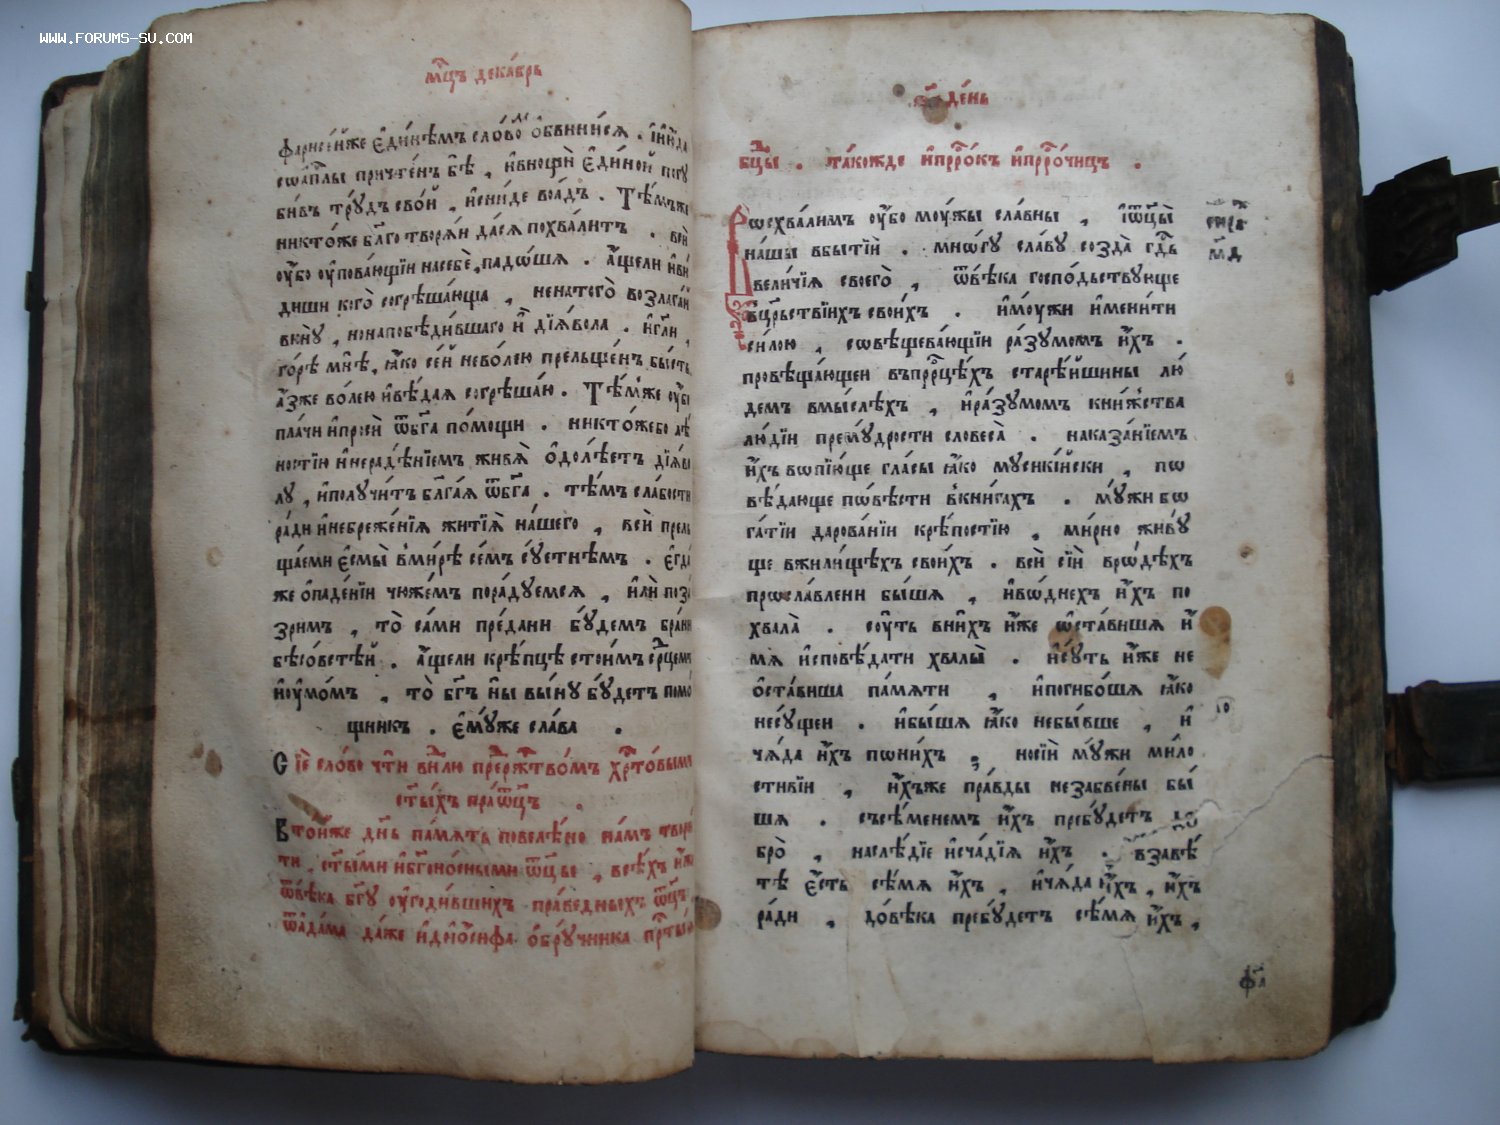 WWW.FORUMS-SU.COM
мц҃ъ дека́врь
фарисе́йже є҆ди́нѣмъ сло́во ѡ҆бвини́ся . и҆ і҆ю́да
соа҆пⷭ҇лы причте́нъ бѣ̀ , и҆внощѝ є҆ди́ной погу
би́въ тру́дъ сво́й , и҆сни́де воа́дъ . Тѣ́мъже
никто́же бл҃готворя́й дася похва́литъ . всѝ
оу҆́бо оу҆пова́ющїи насебѐ, падо́шя . А҆́щели и҆ви́
диши кого̀ согрѣша́юща , ненатого̀ возлага́й
вину̀ , нонапобѣди́вшаго и҆̀ дїя́вола . и҆гл҃и ,
го́рѣ мнѣ̀, ꙗ҆́ко се́й нево́лею прельще́нъ бы́сть
а҆́зже во́лею и҆вѣ́дая согрѣша́ю . Тѣ́мже оу҆́бо
пла́чи и҆просѝ ѿбг҃а по́мощи . никто́жебо лѣ
ностїю и҆нераде́нїемъ живя̀ ѡ҆долѣ́етъ дїя́во
лу , и҆получи́тъ бл҃га́я ѿбг҃а . тѣ́мъ сла́бости
ра́ди и҆небреже́нїя житїя̀ на́шего , всѝ прель
ща́еми є҆смы̀ в̾ми́рѣ се́мъ су́етнѣмъ . є҆гда́
же ѡ҆паде́нїи чюже́мъ пора́дуемся , и҆лѝ поз
зримъ , то̀ са́ми пре́дани бу́демъ бра́ни
бѣсо́встѣй . а҆́щели крѣ́пцѣ стои́мъ срⷣцемъ
и҆оу҆мо́мъ , то̀ бг҃ъ ны̀ вы́ну бу́детъ помо
щникъ . є҆му́же сла́ва .
Сїѐ сло́во чтѝ внⷣлю пре́ржⷭтво́мъ хрⷭто́вымъ
ст҃ы́хъ праѿц҃ъ .
Вто́йже дн҃ь па́мять повеле́но на́мъ твори́
ти . ст҃ы́ми и҆бг҃оно́сными ѿц҃ы , всѣ́хъ и҆́же
ѿвѣ́ка бг҃у оу҆годи́вшихъ пра́ведныхъ ѿц҃ъ
ѿа҆да́ма да́же и҆до́и҆о́сифа ѡ҆бру́чника прⷭты́я
де́нь
бц҃ы . та́кожде и҆прⷪ҇ро́къ и҆прⷪ҇ро́чицъ .
Восхва́лимъ оу҆́бо му́жы сла́вны , и҆ѿц҃ы̀
на́шы вбытїѝ . мно́гу сла́ву созда̀ гдⷭ҇ь
вели́чїя своего̀ , ѿвѣ́ка госпо́дьствующе
вцрⷭ҇ьствїихъ свои́хъ . и҆му́жи и҆мени́ти
си́лою , совѣщева́ющїи ра́зумомъ и҆́хъ .
провѣща́ющеи въпрⷪ҇рцѣхъ старѣ́йшины лю
демъ вмы́слѣхъ , и҆ра́зумомъ кни́жства
лю́дїи прему́дрости словеса̀ . наказа́нїемъ
и҆́хъ вопїю́ще гла́сы ꙗ҆́ко мусики́йски , по
вѣ́дающе по́вѣсти в̾кни́гахъ . му́жи бо
га́тїи дарова́нїи крѣ́постїю , ми́рно живу́
ще вжили́щѣхъ свои́хъ . всѝ сїѝ вро́дѣхъ
просла́влени бы́шя , и҆во́днехъ и҆́хъ по
хвала̀ . су́ть вни́хъ и҆́же ѡ҆ста́вишя и҆́
мя и҆сповѣ́дати хвалы̀ . и҆су́ть и҆́же не
ѡ҆ста́виша па́мяти , и҆погибо́шя ꙗ҆́ко
несу́щеи . и҆бы́шя ꙗ҆́ко небы́вше , и҆
чя́да и҆́хъ пони́хъ , носїѝ му́жи ми́ло
стивїи , и҆́хъже пра́вды незабве́ны бы́
шя . съсѣ́менемъ и҆́хъ пребу́детъ до
бро̀ , наслѣ́дїе и҆счя́дїя и҆́хъ . взавѣ́
тѣ є҆́сть сѣ́мя и҆́хъ , и҆чя́да и҆́хъ , и҆́хъ
ра́ди , до́вѣка пребу́детъ сѣ́мя и҆́хъ ,